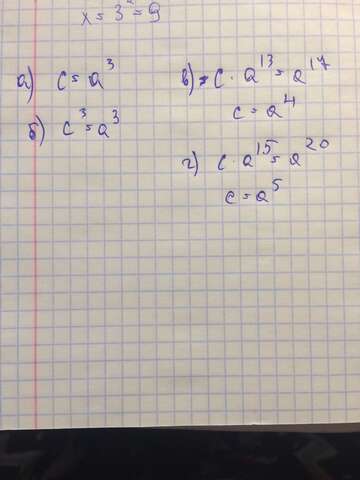 x = 3² = 9
а) c = a³
б) c³ = a³
в) = c · a¹³ = a¹⁷
c = a⁴
г) c · a¹⁵ = a²⁰
c = a⁵